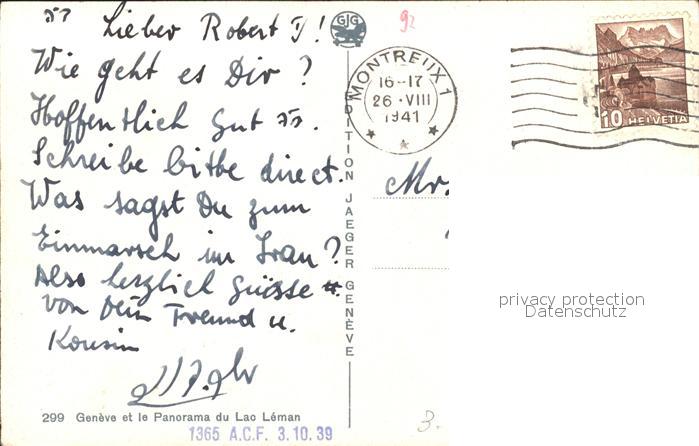 Lieber Robert J!
Wie geht es Dir?
Hoffentlich gut
Schreibe bitte direct.
Was sagst Du zum
Einmarsch im Iran?
Also herzlich Grüsse
von Dein Freund u.
Kousin
GJG
92
MONTREUX 1
16-17
26·VIII
1941
10 HELVETIA
EDITION JAEGER GENÈVE
Mr.
privacy protection
Datenschutz
3.
299 Genève et le Panorama du Lac Léman
1365 A.C.F. 3.10.39